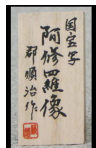 国宝写
阿修羅像
郡順治作